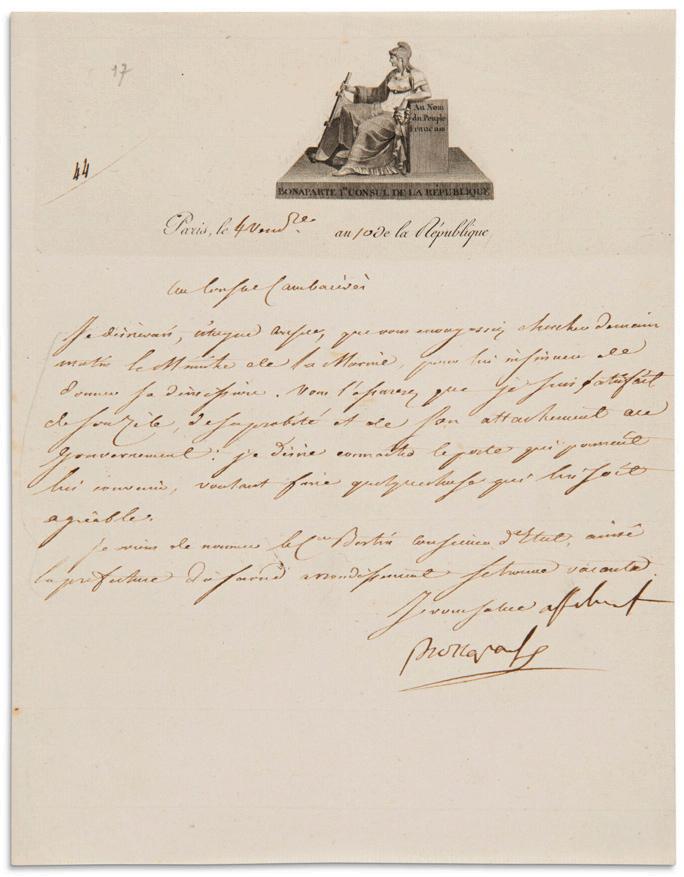 17
44
Au Nom
du Peuple
Français
BONAPARTE 1er CONSUL DE LA RÉPUBLIQUE
Paris, le 4 Vendre. an 10 de la République
Au Consul Cambacérès
Je désirerais, citoyen que vous envoyassiez chercher demain
matin le Ministre de la Marine, pour lui insinuer de
donner sa démission. Vous l'assurerez que je suis satisfait
de son zèle, de sa probité et de son attachement au
Gouvernement: je désire connaître le poste qui pourrait
lui convenir, voulant faire quelque chose qui lui soit
agréable.
Je viens de nommer le Cen Bertin conseiller d'Etat, ainsi
la préfecture arrondissement se trouve vacante.
Je vous salue affectueust
Bonaparte